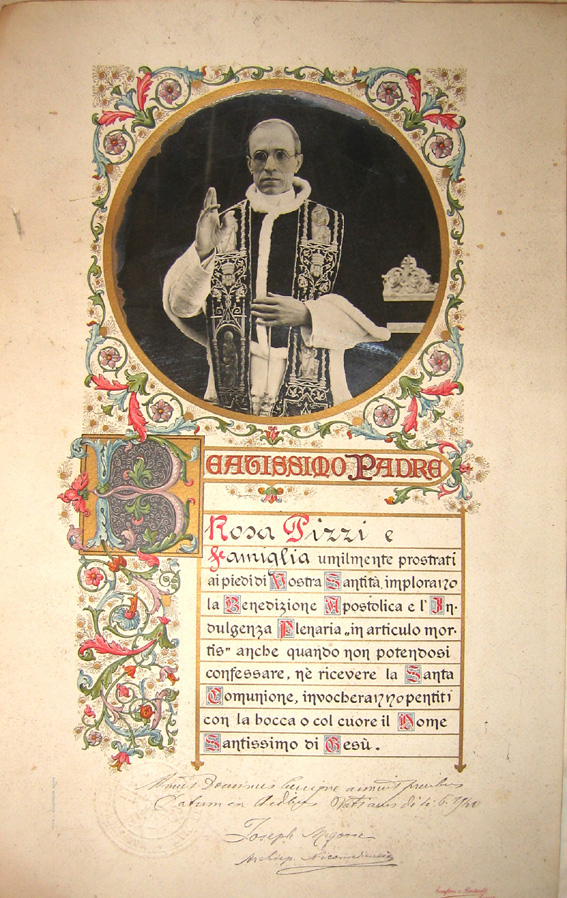 BEATISSIMO PADRE
Rosa Pizzi e
Famiglia umilmente prostrati
ai piedi di Vostra Santità, implorano
la Benedizione Apostolica e l' In-
dulgenza Plenaria „in articulo mor-
tis" anche quando non potendosi
confessare, nè ricevere la Santa
Comunione, invocheranno pentiti
con la bocca o col cuore il Nome
Santissimo di Gesù.
Dominus benigne annuit precibus
Datum ex Aedibus Vaticanis di
Joseph
Archiep.